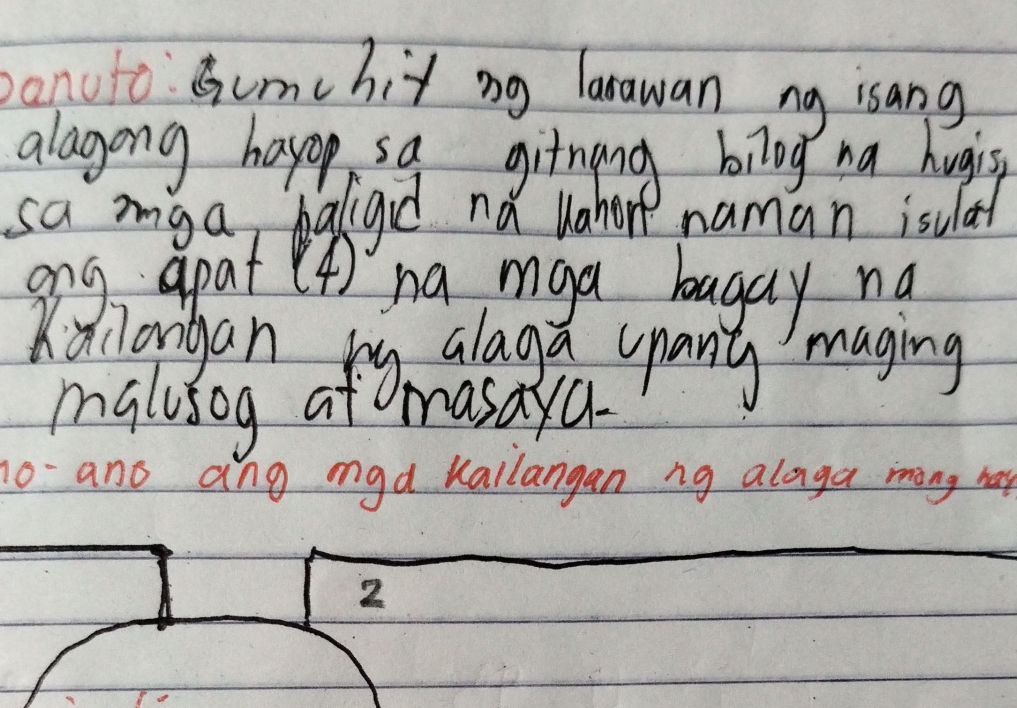 panuto: Gumuhit ng larawan ng isang
alagang hayop sa gitnang bilog na hugis,
sa mga paligid na kahon naman isulat
ang apat (4) na mga bagay na
Kailangan ng alaga upang maging
malusog at masaya.
no-ano ang mga kailangan ng alaga mong hay
2